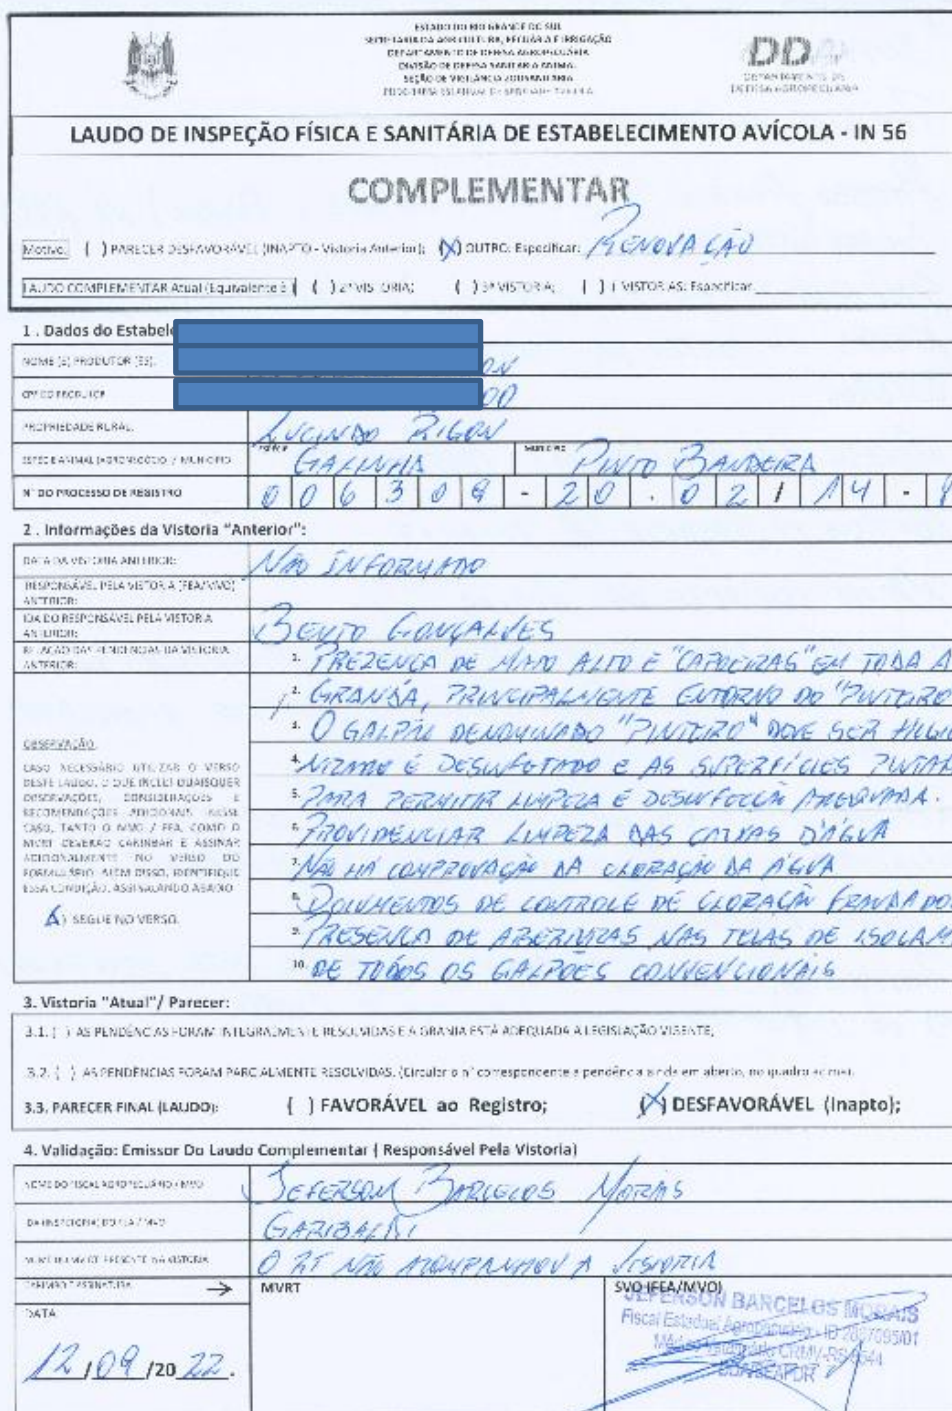 ESTADO DO RIO GRANDE DO SUL
SECRETARIA DA AGRICULTURA, PECUÁRIA E IRRIGAÇÃO
DEPARTAMENTO DE DEFESA AGROPECUÁRIA
DIVISÃO DE DEFESA SANITÁRIA ANIMAL
SEÇÃO DE VIGILÂNCIA ZOOSANITÁRIA
DDA
DEPARTAMENTO DE
DEFESA AGROPECUÁRIA
LAUDO DE INSPEÇÃO FÍSICA E SANITÁRIA DE ESTABELECIMENTO AVÍCOLA - IN 56
COMPLEMENTAR
Motivo: ( ) PARECER DESFAVORÁVEL (INAPTO - Vistoria Anterior); (X) OUTRO: Especificar: RENOVAÇÃO
LAUDO COMPLEMENTAR Atual (Equivalente à) ( ) 2ª VISTORIA; ( ) 3ª VISTORIA; ( ) VISTORIAS: Especificar
1 . Dados do Estabele
NOME (S) PRODUTOR (ES): ON
CPF DO PRODUTOR 00
PROPRIEDADE RURAL: LUCINDO RIGON
ESPÉCIE ANIMAL (AGRONEGÓCIO) / MUNICÍPIO GALINHA MUNICÍPIO PINTO BANDEIRA
N° DO PROCESSO DE REGISTRO 006309-20.02/14-
2 . Informações da Vistoria "Anterior":
DATA DA VISTORIA ANTERIOR: NÃO INFORMADO
RESPONSÁVEL PELA VISTORIA (FEA/MVO)
ANTERIOR:
IDA DO RESPONSÁVEL PELA VISTORIA
ANTERIOR: BENTO GONÇALVES
RELAÇÃO DAS PENDÊNCIAS DA VISTORIA
ANTERIOR:
1. PREZENÇA DE MATO ALTO E "CAPOEIRAS" EM TODA A
2. GRANJA, PRINCIPALMENTE ENTORNO DO "PINTEIRO"
3. O GALPÃO DENOMINADO "PINTEIRO" DEVE SER HIGIE
4. NIZADO E DESINFETADO E AS SUPERFÍCIES PINTAD
5. PARA PERMITIR LIMPEZA E DESINFECÇÃO ADEQUADA.
6. PROVIDENCIAR LIMPEZA DAS CAIXAS D'ÁGUA
7. NÃO HÁ COMPROVAÇÃO DA CLORAÇÃO DA ÁGUA
8. DOCUMENTOS DE CONTROLE DE CLORAÇÃO FRAUDADOS
9. PRESENÇA DE ABERTURAS NAS TELAS DE ISOLAM
10. DE TODOS OS GALPÕES CONVENCIONAIS
OBSERVAÇÃO:
CASO NECESSÁRIO UTILIZAR O VERSO
DESTE LAUDO, O QUE INCLUI QUAISQUER
OBSERVAÇÕES, CONSIDERAÇÕES E
RECOMENDAÇÕES ADICIONAIS. NESSE
CASO, TANTO O MVO / FEA, COMO O
MVRT DEVERÃO CARIMBAR E ASSINAR
ADICIONALMENTE NO VERSO DO
FORMULÁRIO. ALÉM DISSO, IDENTIFIQUE
ESSA CONDIÇÃO, ASSINALANDO ABAIXO
(X) SEGUE NO VERSO.
3. Vistoria "Atual"/ Parecer:
3.1. ( ) AS PENDÊNCIAS FORAM INTEGRALMENTE RESOLVIDAS E A GRANJA ESTÁ ADEQUADA A LEGISLAÇÃO VIGENTE;
3.2. ( ) AS PENDÊNCIAS FORAM PARCIALMENTE RESOLVIDAS. (Circular o n° correspondente a pendência ainda em aberto, no quadro acima).
3.3. PARECER FINAL (LAUDO): ( ) FAVORÁVEL ao Registro; (X) DESFAVORÁVEL (Inapto);
4. Validação: Emissor Do Laudo Complementar ( Responsável Pela Vistoria)
NOME DO FISCAL AGROPECUÁRIO / MVO JEFERSON BARCELOS MORAIS
IDA (INSPETORIA) DO FEA / MVO GARIBALDI
NOME DO MVRT PRESENTE NA VISTORIA O RT NÃO ACOMPANHOU A VISTORIA
CARIMBO E ASSINATURA → MVRT SVO (FEA/MVO)
JEFERSON BARCELOS MORAIS
Fiscal Estadual Agropecuário - ID
Médico Veterinário CRMV-RS
DDA/SEAPDR
DATA
12/09/2022.